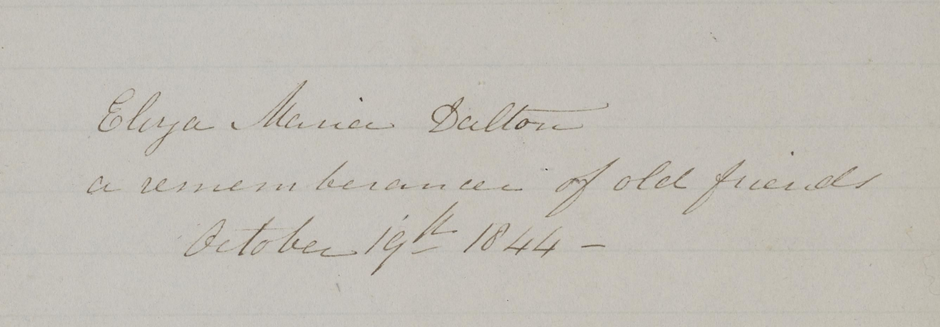 Eliza Maria Dalton
a rememberance of old friends
October 19th 1844 –